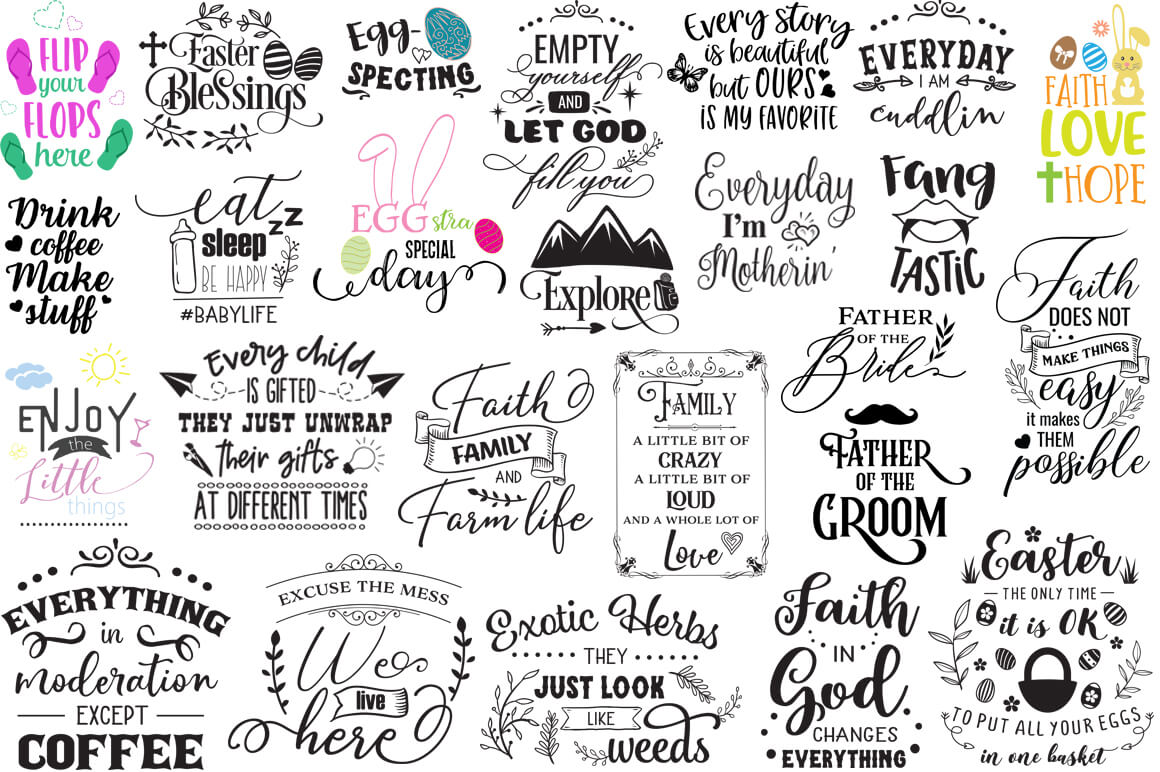 FLIP
your
FLOPS
here
Easter
Blessings
Egg-
SPECTING
EMPTY
yourself
AND
LET GOD
fill you
Every story
is beautiful
but OURS
is my favorite
EVERYDAY
I AM
cuddlin
FAITH
LOVE
HOPE
Drink
coffee
Make
stuff
eat
sleep
BE HAPPY
#BABYLIFE
zz
EGGstra
SPECIAL
day
Explore
Everyday
I'm
Motherin'
Fang
TASTIC
Faith
DOES NOT
MAKE THINGS
easy
it makes
THEM
possible
ENJOY
the
Little
things
Every child
IS GIFTED
THEY JUST UNWRAP
their gifts
AT DIFFERENT TIMES
Faith
FAMILY
AND
Farm life
FAMILY
A LITTLE BIT OF
CRAZY
A LITTLE BIT OF
LOUD
AND A WHOLE LOT OF
Love
FATHER
OF THE
Bride
FATHER
OF THE
GROOM
EVERYTHING
in
moderation
EXCEPT
COFFEE
EXCUSE THE MESS
We
live
here
Exotic Herbs
THEY
JUST LOOK
LIKE
weeds
Faith
IN
God
CHANGES
EVERYTHING
Easter
THE ONLY TIME
it is OK
TO PUT ALL YOUR EGGS
in one basket